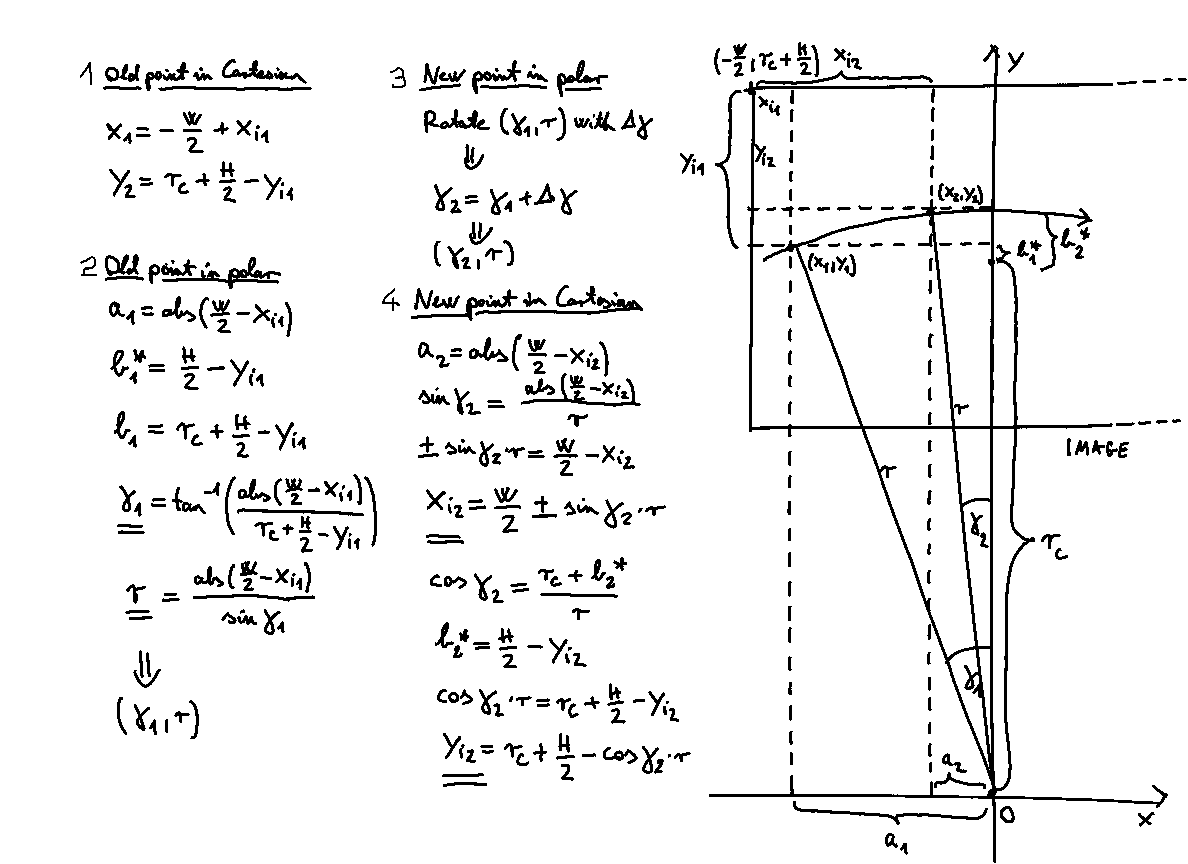 1 Old point in Cartesian
x₁ = - W/2 + x_i1
y₂ = r_c + H/2 - y_i1
2 Old point in polar
a₁ = abs(W/2 - x_i1)
b₁* = H/2 - y_i1
b₁ = r_c + H/2 - y_i1
γ₁ = tan⁻¹(abs(W/2 - x_i1) / (r_c + H/2 - y_i1))
r = abs(W/2 - x_i1) / sin γ₁
⇓
(γ₁, r)
3 New point in polar
Rotate (γ₁, r) with Δγ
⇓
γ₂ = γ₁ + Δγ
⇓
(γ₂, r)
4 New point in Cartesian
a₂ = abs(W/2 - x_i2)
sin γ₂ = abs(W/2 - x_i2) / r
± sin γ₂ · r = W/2 - x_i2
x_i2 = W/2 ± sin γ₂ · r
cos γ₂ = (r_c + b₂*) / r
b₂* = H/2 - y_i2
cos γ₂ · r = r_c + H/2 - y_i2
y_i2 = r_c + H/2 - cos γ₂ · r
(-W/2, r_c + H/2)
x_i2
y
x_i1
y_i1
y_i2
(x₂, y₂)
(x₁, y₁)
b₁*
b₂*
IMAGE
r
r
γ₂
r_c
γ₁
a₂
0
x
a₁